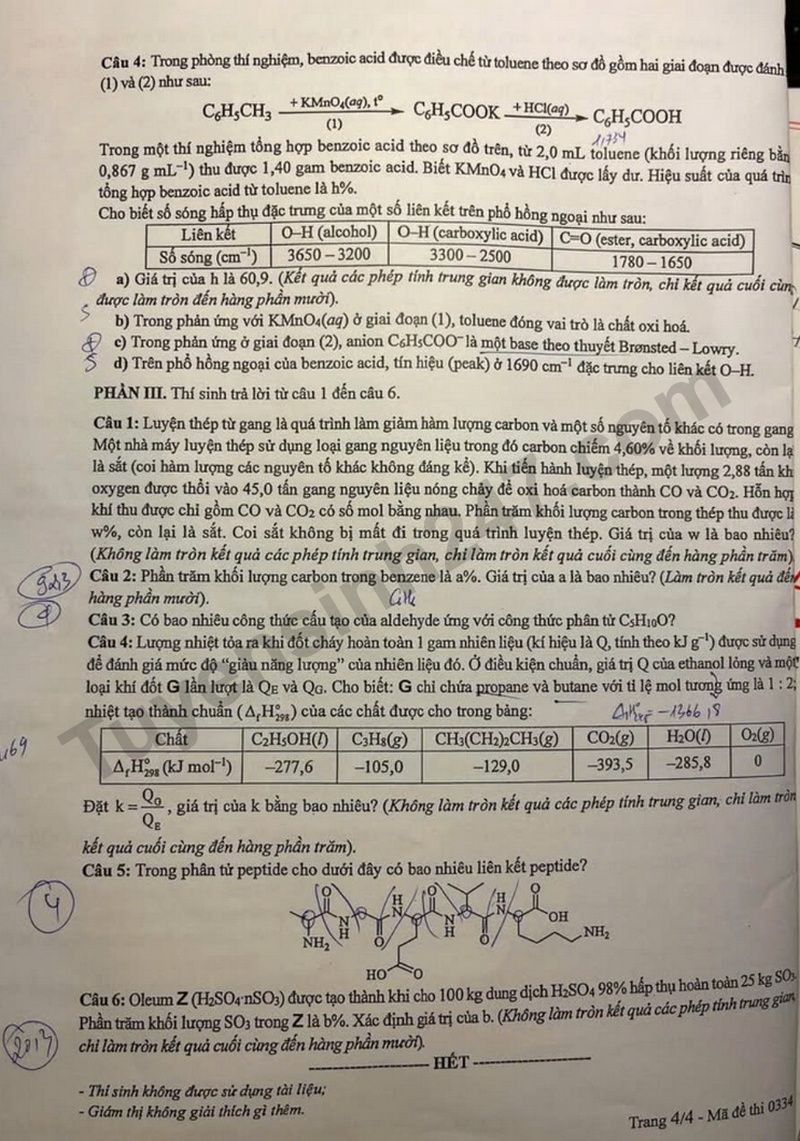 Câu 4: Trong phòng thí nghiệm, benzoic acid được điều chế từ toluene theo sơ đồ gồm hai giai đoạn được đánh
(1) và (2) như sau:
C₆H₅CH₃ + KMnO₄(aq), t° (1) → C₆H₅COOK + HCl(aq) (2) → C₆H₅COOH
1,734
Trong một thí nghiệm tổng hợp benzoic acid theo sơ đồ trên, từ 2,0 mL toluene (khối lượng riêng bằn
0,867 g mL⁻¹) thu được 1,40 gam benzoic acid. Biết KMnO₄ và HCl được lấy dư. Hiệu suất của quá trìn
tổng hợp benzoic acid từ toluene là h%.
Cho biết số sóng hấp thụ đặc trưng của một số liên kết trên phổ hồng ngoại như sau:
Liên kết O–H (alcohol) O–H (carboxylic acid) C=O (ester, carboxylic acid)
Số sóng (cm⁻¹) 3650 – 3200 3300 – 2500 1780 – 1650
Đ a) Giá trị của h là 60,9. (Kết quả các phép tính trung gian không được làm tròn, chỉ kết quả cuối cùn
được làm tròn đến hàng phần mười).
S b) Trong phản ứng với KMnO₄(aq) ở giai đoạn (1), toluene đóng vai trò là chất oxi hoá.
Đ c) Trong phản ứng ở giai đoạn (2), anion C₆H₅COO⁻ là một base theo thuyết Brønsted – Lowry.
S d) Trên phổ hồng ngoại của benzoic acid, tín hiệu (peak) ở 1690 cm⁻¹ đặc trưng cho liên kết O–H.
PHẦN III. Thí sinh trả lời từ câu 1 đến câu 6.
Câu 1: Luyện thép từ gang là quá trình làm giảm hàm lượng carbon và một số nguyên tố khác có trong gang
Một nhà máy luyện thép sử dụng loại gang nguyên liệu trong đó carbon chiếm 4,60% về khối lượng, còn lạ
là sắt (coi hàm lượng các nguyên tố khác không đáng kể). Khi tiến hành luyện thép, một lượng 2,88 tấn kh
oxygen được thổi vào 45,0 tấn gang nguyên liệu nóng chảy để oxi hoá carbon thành CO và CO₂. Hỗn hợp
khí thu được chỉ gồm CO và CO₂ có số mol bằng nhau. Phần trăm khối lượng carbon trong thép thu được là
w%, còn lại là sắt. Coi sắt không bị mất đi trong quá trình luyện thép. Giá trị của w là bao nhiêu?
(Không làm tròn kết quả các phép tính trung gian, chỉ làm tròn kết quả cuối cùng đến hàng phần trăm)
92,3 Câu 2: Phần trăm khối lượng carbon trong benzene là a%. Giá trị của a là bao nhiêu? (Làm tròn kết quả đến
hàng phần mười).
Câu 3: Có bao nhiêu công thức cấu tạo của aldehyde ứng với công thức phân tử C₅H₁₀O?
Câu 4: Lượng nhiệt tỏa ra khi đốt cháy hoàn toàn 1 gam nhiên liệu (kí hiệu là Q, tính theo kJ g⁻¹) được sử dụng
để đánh giá mức độ “giàu năng lượng” của nhiên liệu đó. Ở điều kiện chuẩn, giá trị Q của ethanol lỏng và một
loại khí đốt G lần lượt là Q_E và Q_G. Cho biết: G chỉ chứa propane và butane với tỉ lệ mol tương ứng là 1 : 2;
nhiệt tạo thành chuẩn (Δ_fH°₂₉₈) của các chất được cho trong bảng:
Chất C₂H₅OH(l) C₃H₈(g) CH₃(CH₂)₂CH₃(g) CO₂(g) H₂O(l) O₂(g)
Δ_fH°₂₉₈ (kJ mol⁻¹) –277,6 –105,0 –129,0 –393,5 –285,8 0
Đặt k = Q_G/Q_E, giá trị của k bằng bao nhiêu? (Không làm tròn kết quả các phép tính trung gian, chỉ làm tròn
kết quả cuối cùng đến hàng phần trăm).
Câu 5: Trong phân tử peptide cho dưới đây có bao nhiêu liên kết peptide?
4
O H N O H N O
NH₂ N H O N H O OH NH₂
HO O
Câu 6: Oleum Z (H₂SO₄·nSO₃) được tạo thành khi cho 100 kg dung dịch H₂SO₄ 98% hấp thụ hoàn toàn 25 kg SO₃.
Phần trăm khối lượng SO₃ trong Z là b%. Xác định giá trị của b. (Không làm tròn kết quả các phép tính trung gian,
chỉ làm tròn kết quả cuối cùng đến hàng phần mười).
HẾT
- Thí sinh không được sử dụng tài liệu;
- Giám thị không giải thích gì thêm.
Trang 4/4 - Mã đề thi 0334